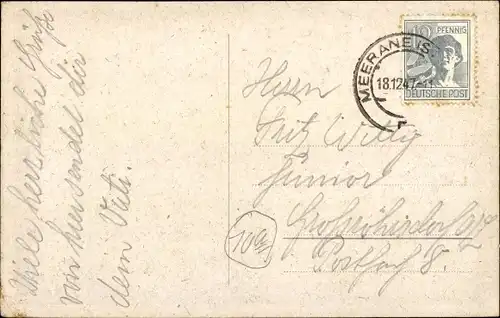 Viele herzliche Grüße
von hier sendet dir
dein Vati.
12 PFENNIG
DEUTSCHE POST
MEERANE (S
18.12.47
Herrn
Fritz Willy
Junior
Großröhrsdorf
Postfach 8.
10a